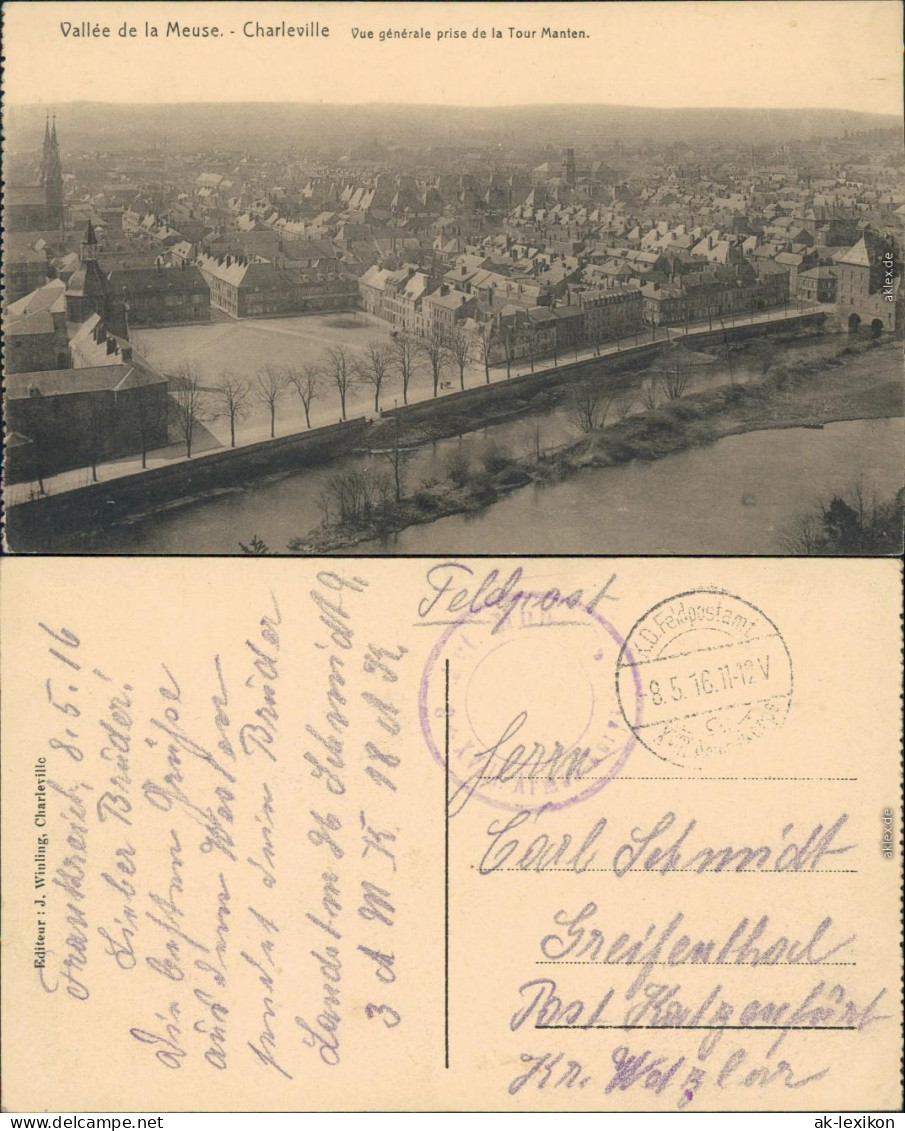 Vallée de la Meuse. - Charleville Vue générale prise de la Tour Manten.
Editeur : J. Winling, Charleville
Frankreich, 8.5.16
Lieber Brüder!
Die besten Grüße
aus dem Westen
sendet dein Brüder
Landstm H Schmidt
3 A M K 18 A K.
Feldpost
K.D. Feldpostamt
8.5.16.11-12V
Herrn
Carl Schmidt
Greifenthal
Post Katzenfürt
Kr. Wetzlar
aklex.de
aklex.de
www.ansichtskarten-lexikon.de
ak-lexikon